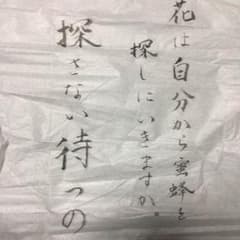 花は自分から蜜蜂を
探しにいきますか。
探さない待つの